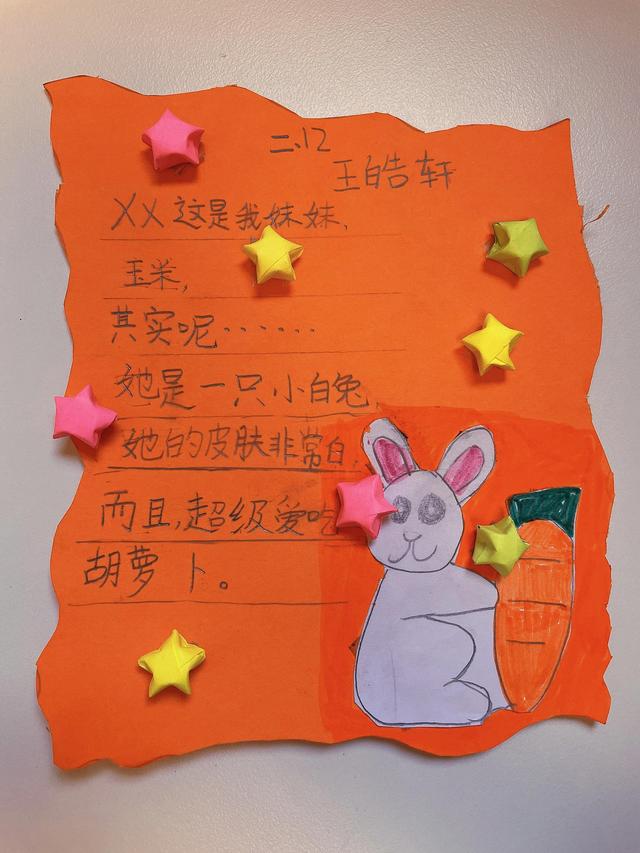 二、12
王皓轩
XX这是我妹妹,
玉米,
其实呢……
她是一只小白兔,
她的皮肤非常白,
而且,超级爱吃
胡萝卜。